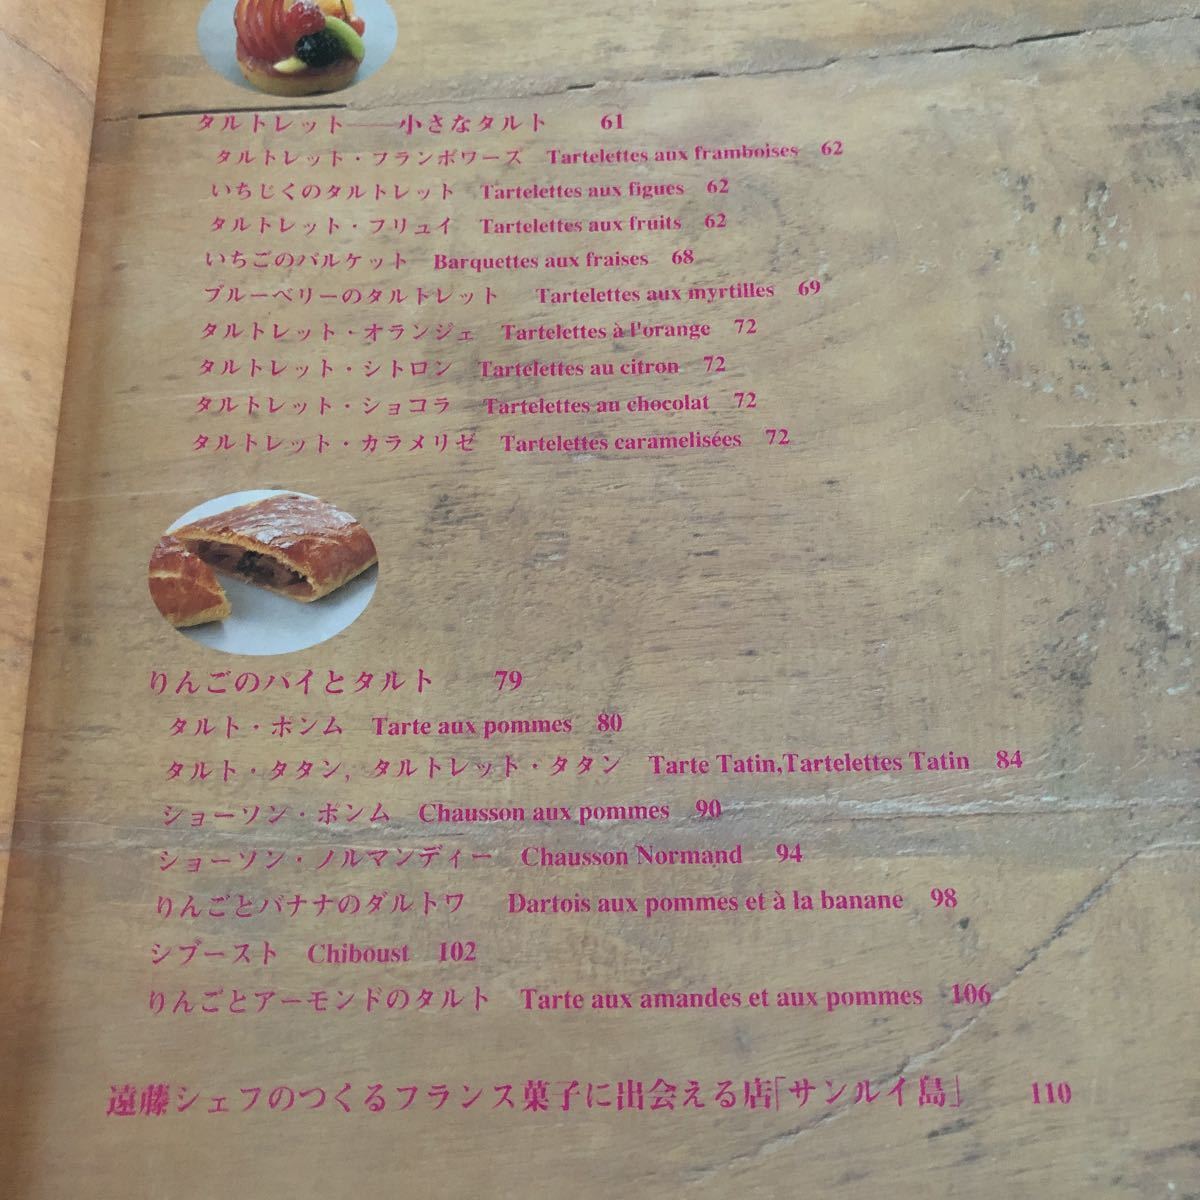 タルトレット——小さなタルト 61
タルトレット・フランボワーズ Tartelettes aux framboises 62
いちじくのタルトレット Tartelettes aux figues 62
タルトレット・フリュイ Tartelettes aux fruits 62
いちごのバルケット Barquettes aux fraises 68
ブルーベリーのタルトレット Tartelettes aux myrtilles 69
タルトレット・オランジェ Tartelettes à l'orange 72
タルトレット・シトロン Tartelettes au citron 72
タルトレット・ショコラ Tartelettes au chocolat 72
タルトレット・カラメリゼ Tartelettes caramelisées 72
りんごのパイとタルト 79
タルト・ポンム Tarte aux pommes 80
タルト・タタン, タルトレット・タタン Tarte Tatin,Tartelettes Tatin 84
ショーソン・ポンム Chausson aux pommes 90
ショーソン・ノルマンディー Chausson Normand 94
りんごとバナナのダルトワ Dartois aux pommes et à la banane 98
シブースト Chiboust 102
りんごとアーモンドのタルト Tarte aux amandes et aux pommes 106
遠藤シェフのつくるフランス菓子に出会える店「サンルイ島」 110